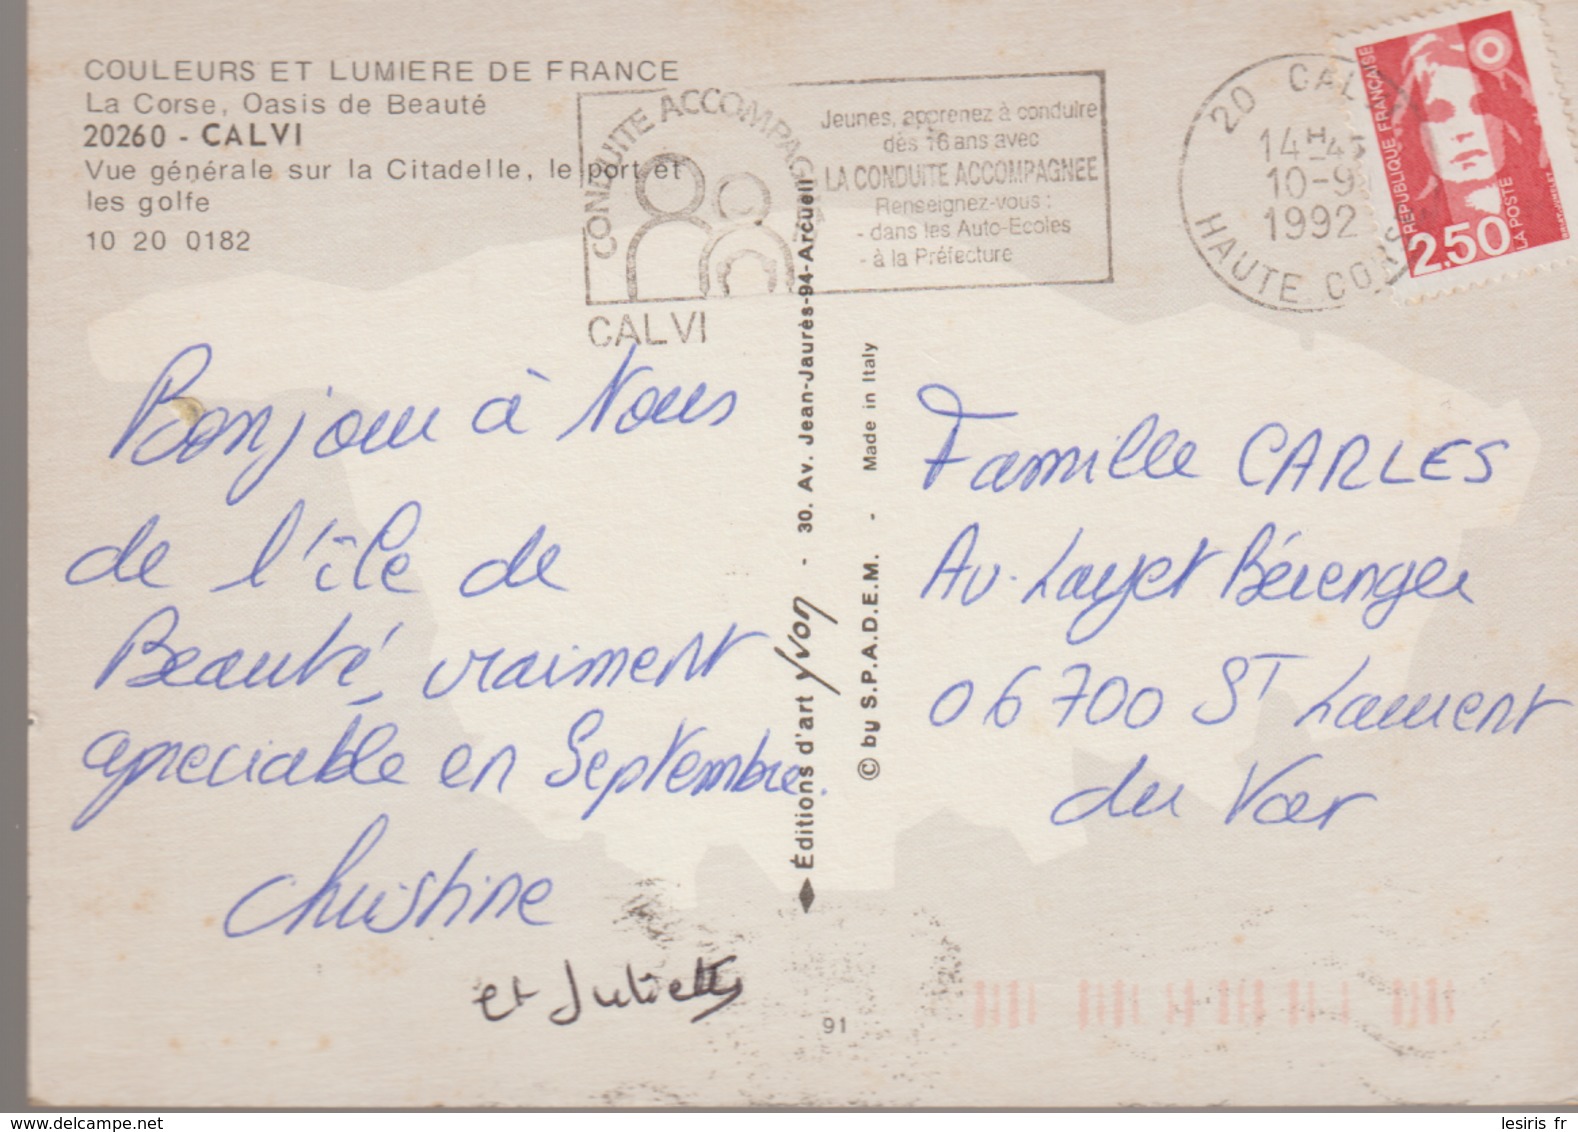 COULEURS ET LUMIERE DE FRANCE
La Corse, Oasis de Beauté
20260 - CALVI
Vue générale sur la Citadelle, le port et
les golfe
10 20 0182
CONDUITE ACCOMPAGNÉE
Jeunes, apprenez à conduire
dès 16 ans avec
LA CONDUITE ACCOMPAGNEE
Renseignez-vous :
- dans les Auto-Ecoles
- à la Préfecture
CALVI
20 CALVI
14H-45
10-9
1992
HAUTE CORSE
REPUBLIQUE FRANÇAISE
2,50
LA POSTE
Bonjour à Vous
de l'île de
Beauté, vraiment
apreciable en Septembre.
Christine
et Juliette
Éditions d'art Yvon - 30. Av. Jean-Jaurès-94-Arcueil
© by S.P.A.D.E.M. - Made in Italy
Famille CARLES
Av. Layet Bérenger
06700 ST Laurent
du Var
91
lesiris fr